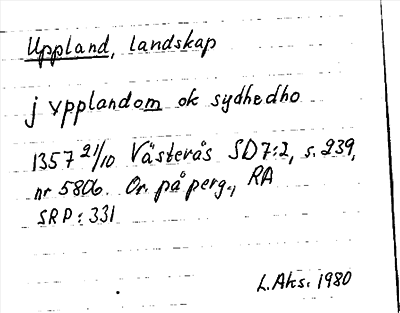 Uppland, landskap
j vpplandom ok sydhedho
1357 21/10 Västerås SD7:2, s. 239,
nr 5806. Or. på perg., RA
SRP: 331
L. Aks. 1980